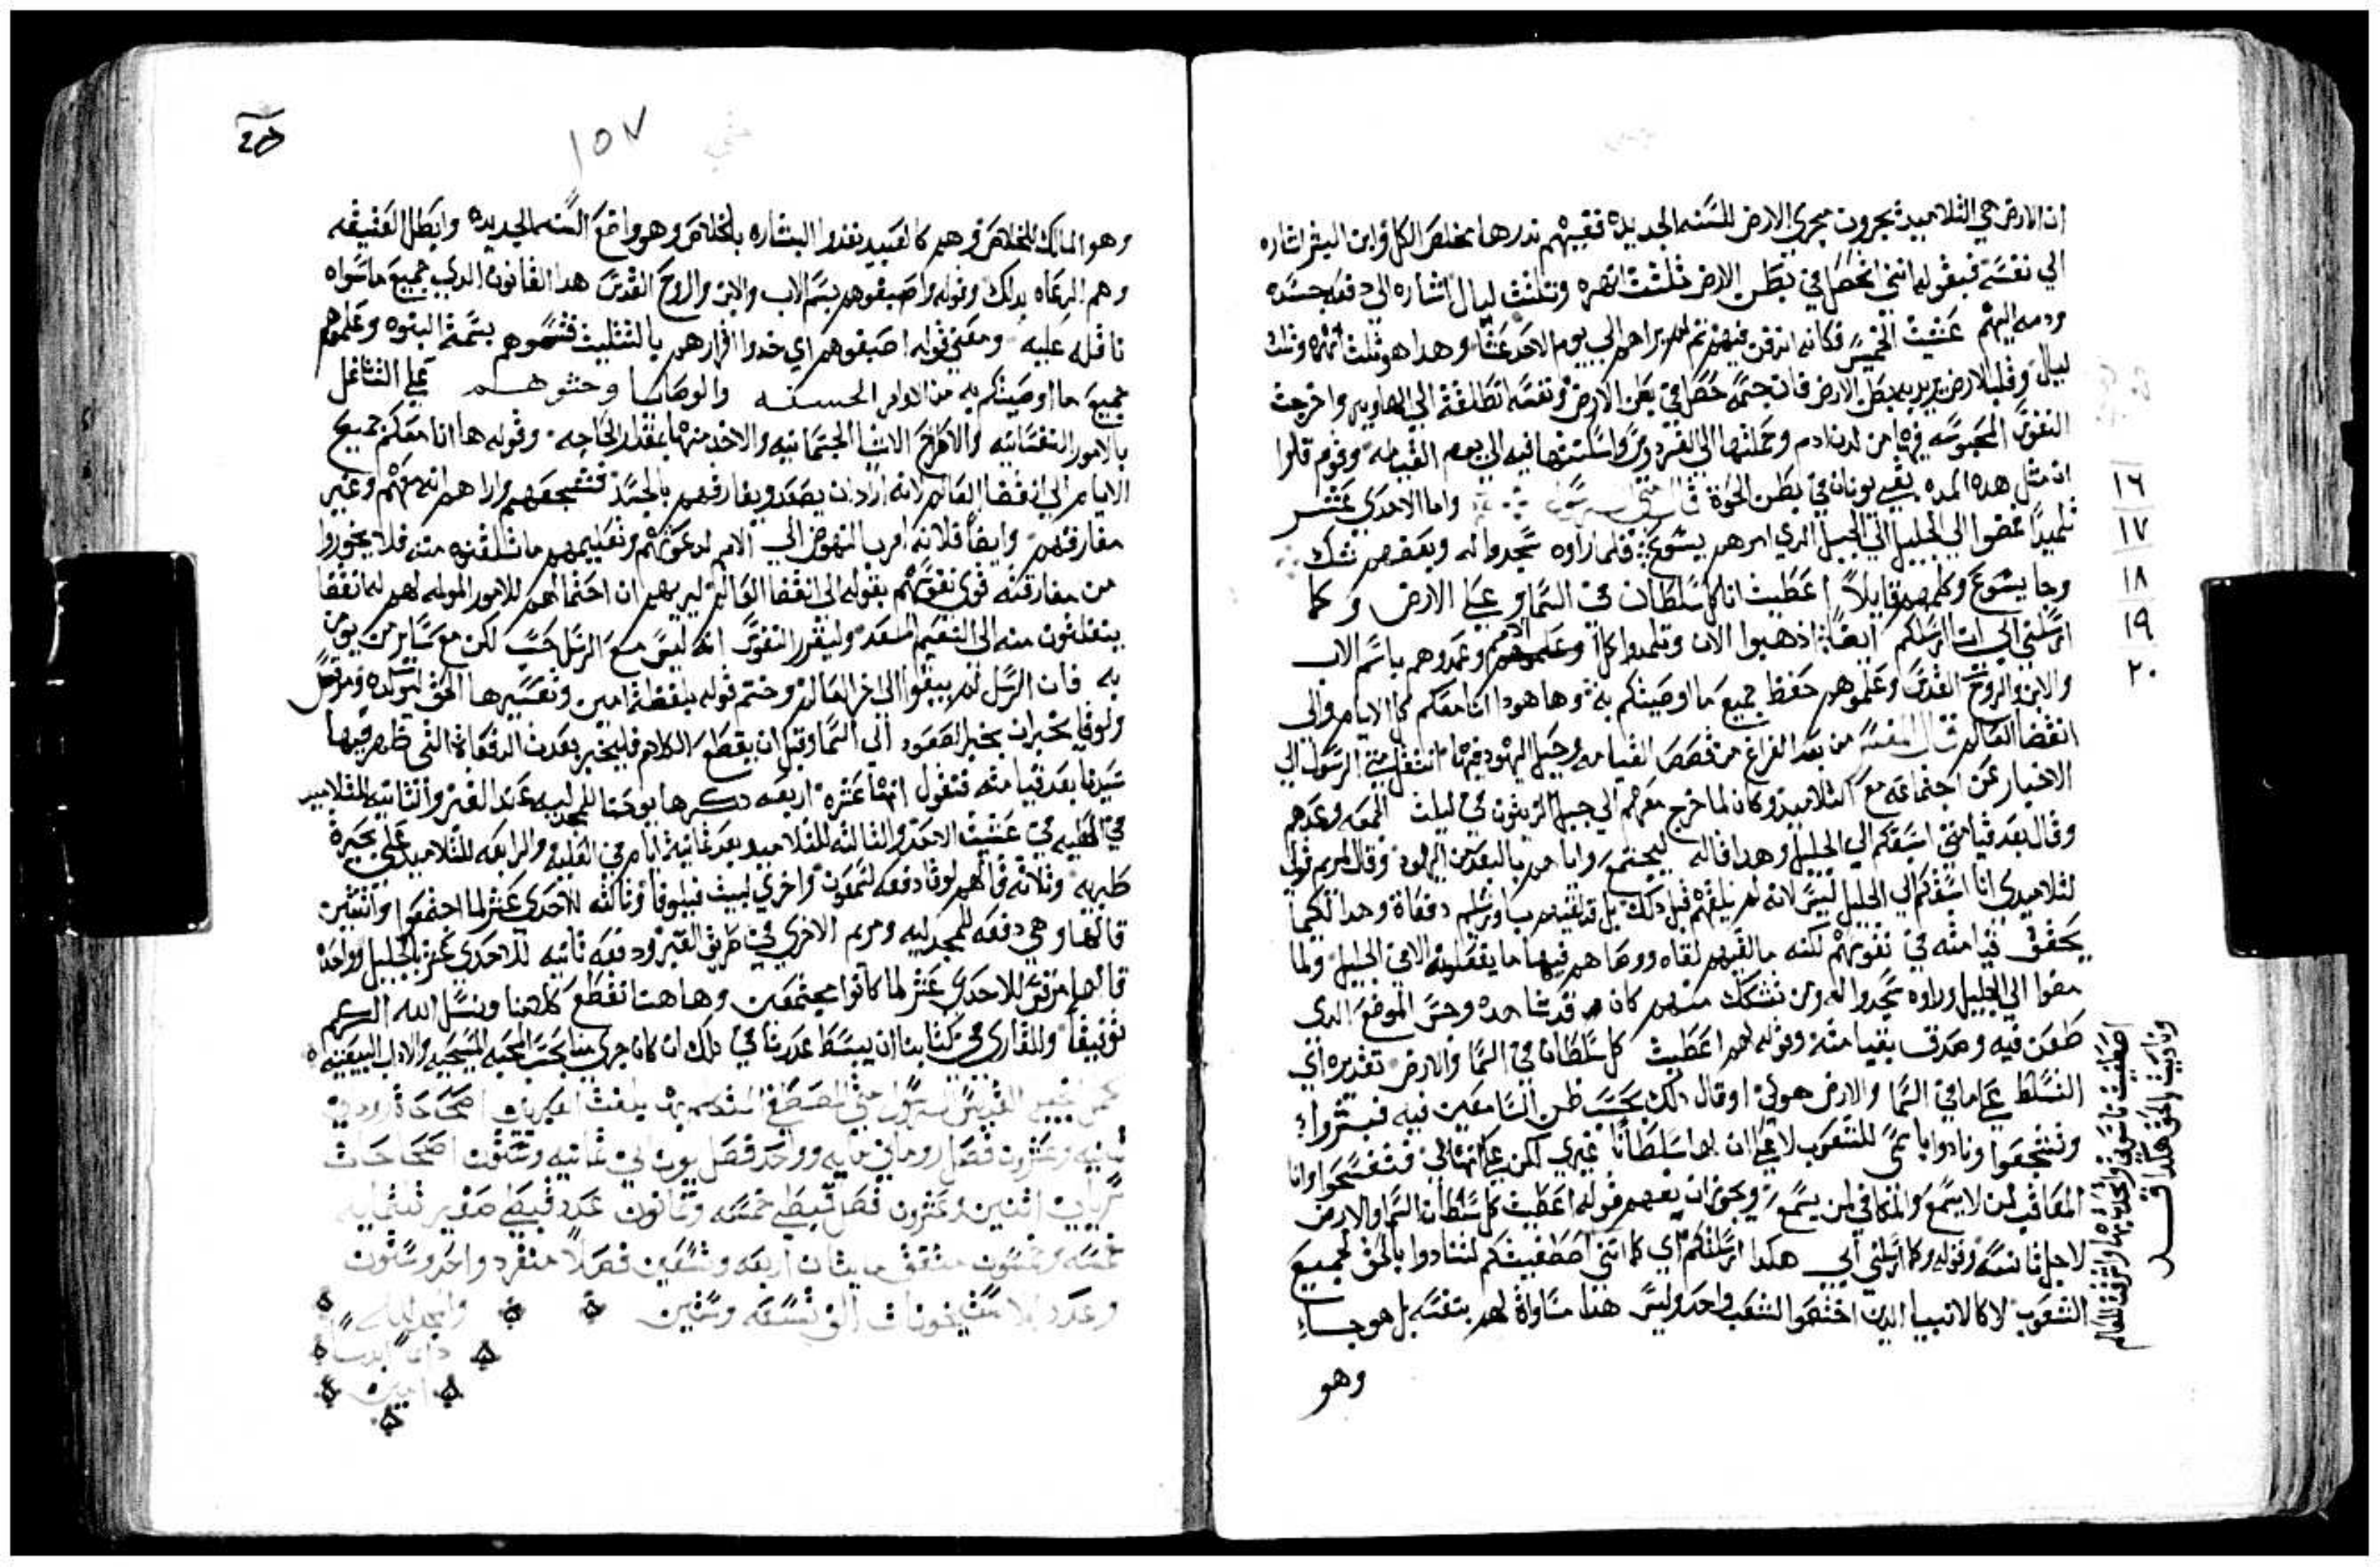 ان الارض هي التلاميذ يجرون مجري الارض للسنه الجديده ففيهم ندرها مخلص الكل وابن البشر اشاره
الي نفسه فبقوله انني احصل في بطن الارض ثلثة انهره وثلث ليال اشاره الي دفعه جسده
ودمه اليهم عشية الخميس فكانه اندفن فيهم ثم لم يراهم الي يوم الاحد عشا وهدا هو ثلث انهره وثلث
ليال وقلب الارض يريد به بطن الارض فان جسمه حصل في بطن الارض ونفسه انطلقة الي الهاويه واخرجت
النفوس المحبوسه فيها من لدن ادم وحملتها الي الفردوس واسكنتها فيه الي يوم القيامه وقوم قالوا
ان مثل هده المده بقي يونان في بطن الحوة قال متي الرسول واما الاحدي عشر
تلميدا فمضوا الي الجليل الي الجبل الدي امرهم يسوع فلما راوه سجدوا له وبعضهم شك
وجا يسوع وكلمهم قايلا اعطيت انا كل سلطان في السما وعلي الارض وكما
ارسلني ابي ارسلكم ايضا اذهبوا الان وتلمدوا كل الامم وعمدوهم باسم الاب
والابن والروح القدس وعلموهم حفظ جميع ما اوصيتكم به وها هودا انا معكم كل الايام والي
انقضا العالم قال المفسر من بعد الفراغ من قصص القيامه وحيل اليهود فيها انتقل متي الرسول الي
الاخبار عن اجتماعه مع التلاميذ وكان لما خرج معهم الي جبل الزيتون في ليلت الجمعه وعدهم
وقال بعد قيامتي اسبقكم الي الجليل وهدا قاله ليجتمع واياهم بالبعد من اليهود وقال لمريم قولي
لتلاميدي انا اسبقكم الي الجليل ليس لانه لم يلقهم قبل دلك بل قد لقيهم باورشليم دفعاة وهدا لكيما
يحقق قيامته في نفوسهم لكنه ما لقيهم لقاه ووصاهم فيها ما يفعلونه الا في الجليل ولما
مضوا الي الجليل وراوه سجدوا له ومن تشكك منهم كان قد شاهده وحس الموضع الدي
طعن فيه وصدق بقيامته وقوله لهم اعطيت كل سلطان في السما والارض تقديره اي
التسلط علي ما في السما والارض هو لي اوقال دلك بحسب ظن السامعين فيه فبشروا
وتشجعوا ونادوا باسمي للشعوب لا علي ان لها سلطانا غيري لكن علي انها لي فتفسحوا وانا
المعاقب لمن لا يسمع والمكافي لمن يسمع ويجوز ان يفهم قوله اعطيت كل سلطان السما والارض
لاجل ناسه وقوله وكما ارسلني ابي هكدا ارسلكم اي كما انني اصطفيتكم لتنادوا بالحق لجميع
الشعوب لا كالانبيا الدين اختصوا لشعب واحد وليس هذا مساواة لهم بنفسه بل هو جسا
وهو
١٦
١٧
١٨
١٩
٢٠
١٥٧
وهو المالك للخلاص وهم كالعبيد نفدوا البشاره بالخلاص وهو واضع السنه الجديده وابطل العتيقه
وهم الرعاه بدلك وقوله واصبغوهم بسم الاب والابن والروح القدس هدا القانون الدي جميع ما سواه
نافله عليه ومعني قوله اصبغوهم اي خدوا اقرارهم بالتثليث فتسموهم بسمة البنوه وعلموهم
جميع ما اوصيتكم به من الاوامر الحسنه والوصايا وحثوهم علي التشاغل
بالامور النفسانيه والاطراح الاشيا الجسمانيه والاخد منها بمقدار الحاجه وقوله ها انا معكم جميع
الايام الي انقضا العالم لانه اراد ان يصعد ويفارقهم بالجسد فشجعهم واراهم انه معهم وغير
مفارقهم وايضا فلانه امر بالنهوض الي الامم لدعوتهم وتعليمهم ما تسلقنوه منه فلا يخوروا
من مفارقته قوي نفوسهم بقوله الي انقضا العالم ليريهم ان احتمالهم للامور المولمه لهم له انقضا
ينقلبون منه الي النعيم المعد وليقرر النفوس انه ليس مع الرسل حسب لكن مع ساير من يومن
به فان الرسل لم يبقوا الي اخر العالم وختم قوله بلفظة امين وتفسيرها الحق
ولوقا يخبران بخبر الصعود الي السما وقبل ان يقطع الكلام فليخبر بعدت الدفعاة التي ظهر فيها
سيدنا بعد قيامته فنقول انها عشره اربعه دكرها يوحنا للمجدليه عند القبر والثانيه للتلاميد
في العليه في عشية الاحد والثالثه للتلاميد بعد ثمانية ايام في العليه والرابعه للتلاميد علي بحيرة
طبريه وثلاثه قالهم لوقا دفعه لشمعون واخري لبيت قيلوفا وثالثه للاحدي عشر لما اجتمعوا واثنتين
قالها وهي دفعه للمجدليه ومريم الاخري في طريق القبر ودفعه ثانيه للاحدي عشر بالجليل وواحده
قالها مرقس للاحدي عشر لما كانوا مجتمعين وها هنا نقطع كلامنا ونسل الله الكريم
توفيقا وللقاري في كتابنا ان يبسط عدرنا في دلك ان كان جري منا بحسب المحبه المسيحيه والاداب البيعيه
ثمانيه وعشرون فصل روماني مايه وواحد فصل يوناني ثمانيه وستون اصحاحات
سرياني اثنين وعشرون فصل قبطي خمسه وثمانون عدد قبطي صغير ثلثمايه
خمسه وخمسون متفق مايتان اربعه وتسعين فصلا منفرد واحد وستون
وعدد الاستيخونات الفي تسعه وستين والمجد لله
دايما ابديا
امين